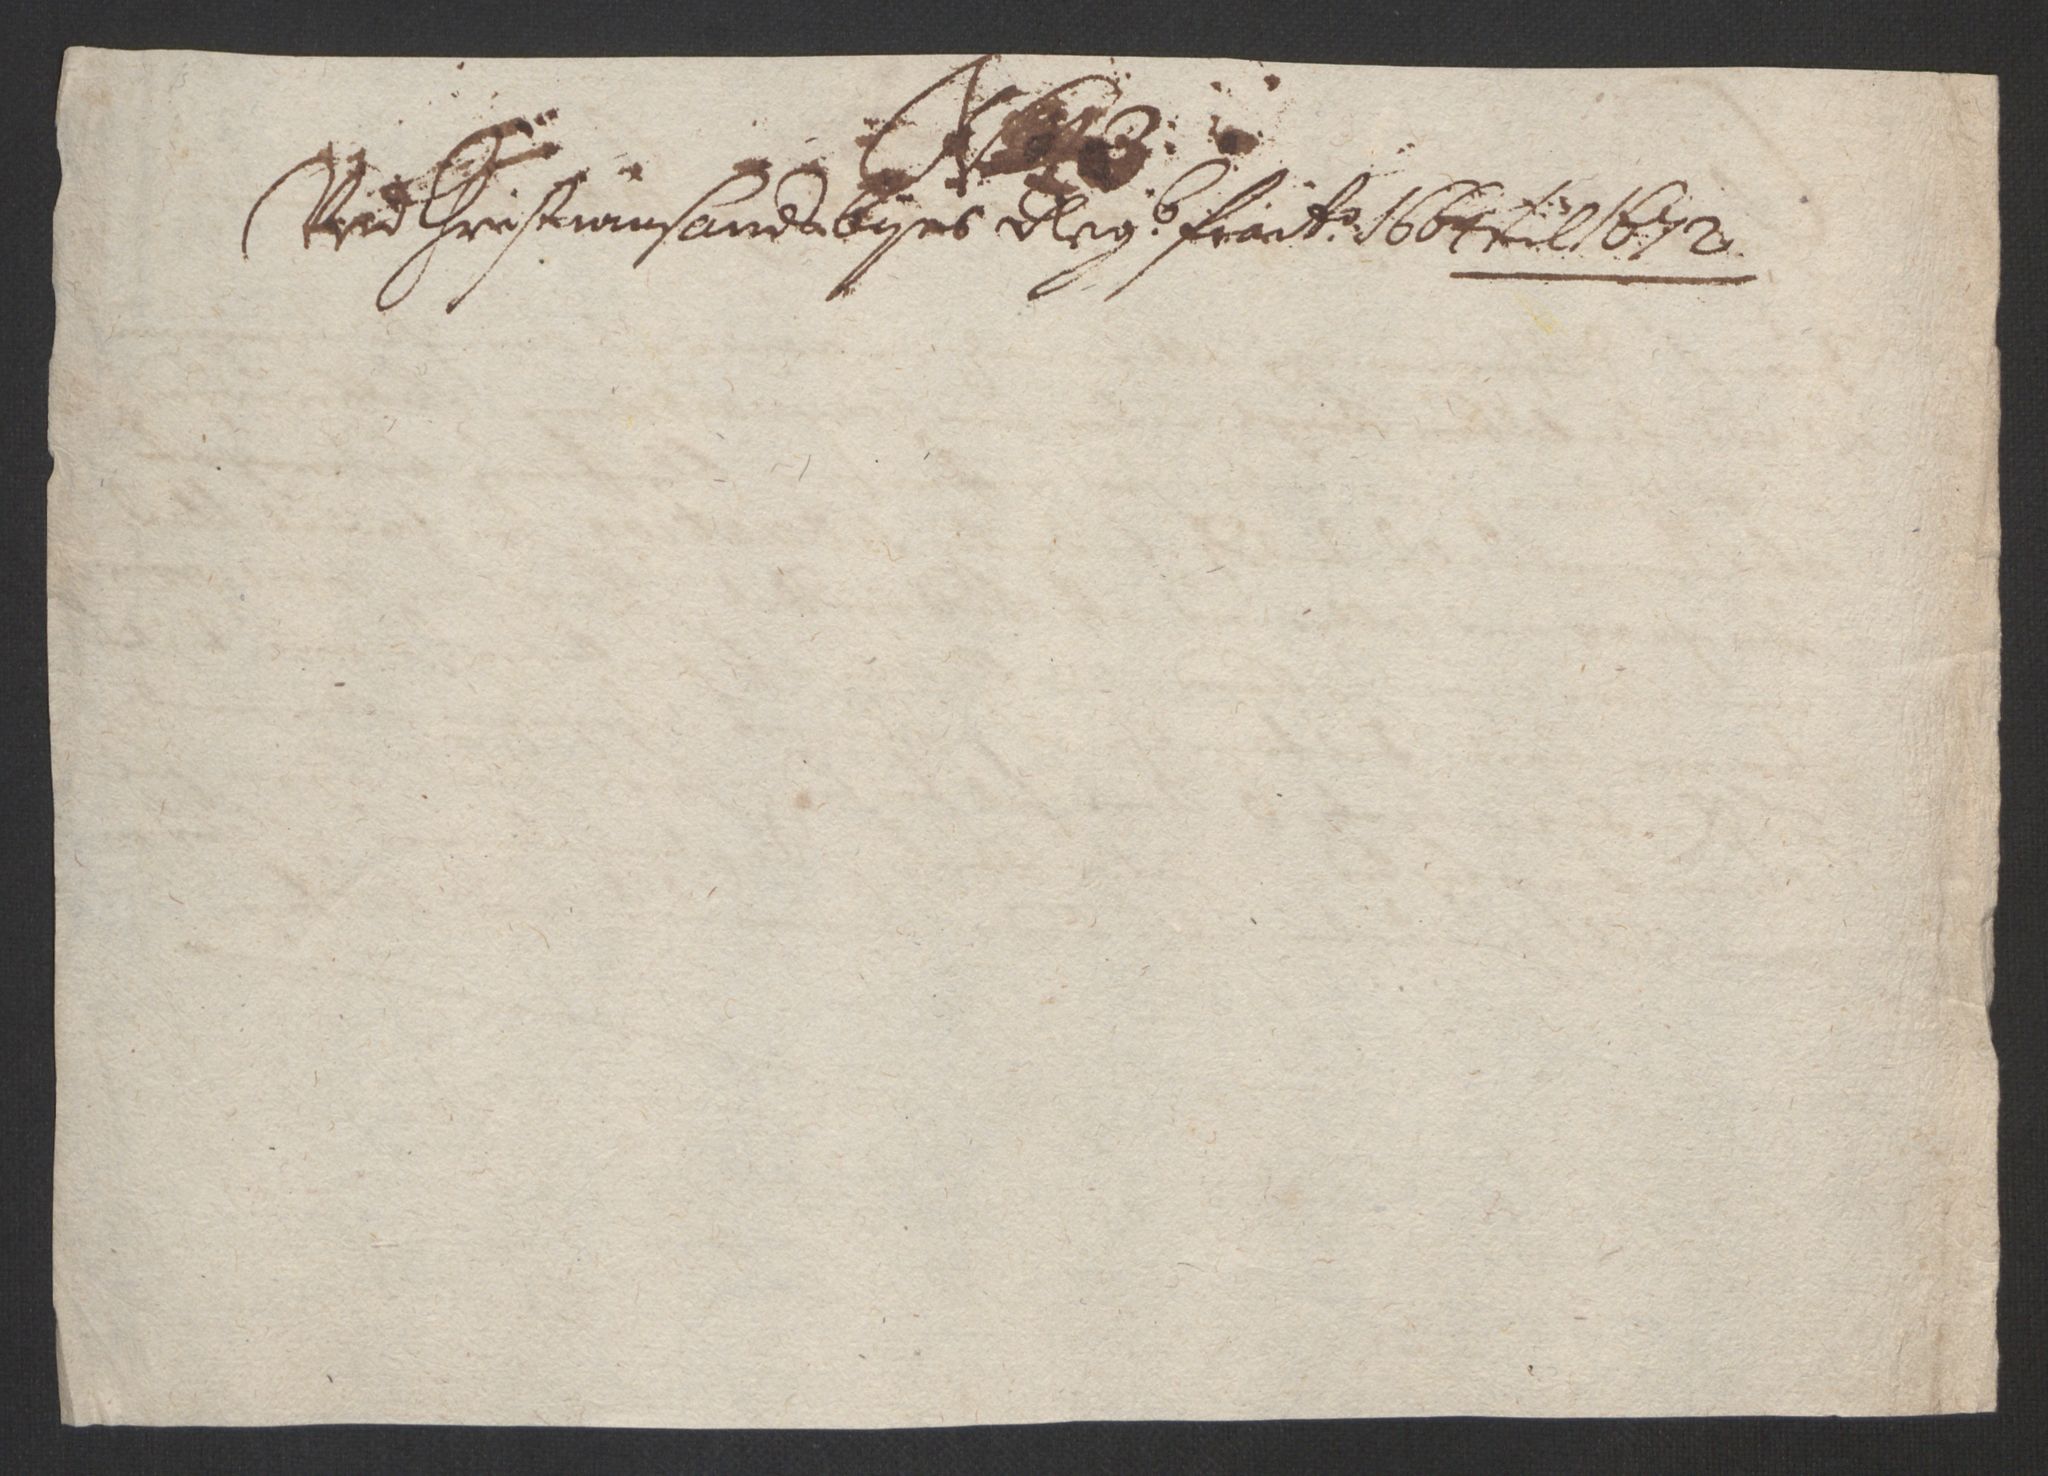 No 3.
Ved Christiansands byes Regb: fra Ao: 1664 til 1672.